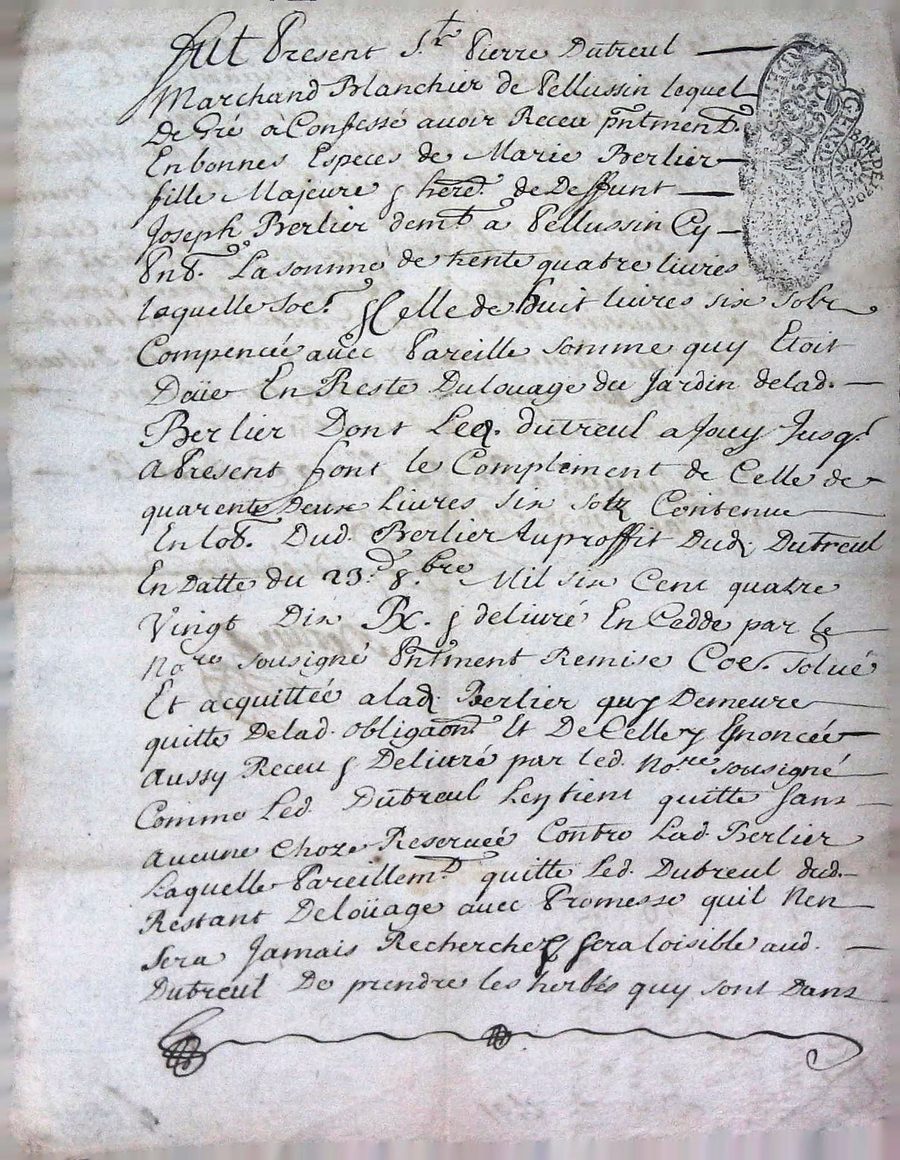 Fut Present Sr. Pierre Dutreul
Marchand Blanchier de Pellussin lequel
De Gré à Confessé avoir Receu pntment.
En bonnes Especes de Marie Berlier
fille Majeure & hered. de Deffunt
Joseph Berlier demt. a Pellussin Cy
Pnt. La somme de trente quatre livres
laquelle Soe. & Celle de huit livres six solz
Compencée avec Pareille somme quy Etoit
Deüe En Reste Du louage du Jardin de lad.
Berlier Dont Led. dutreul a Jouy Jusq.
A Present font le Complement de Celle de
quarente Deux Livres six solz Contenue
En lob. Dud. Berlier Au proffit Dud. Dutreul
En Datte du 23.e 8.bre Mil six Cent quatre
Vingt Dix & delivré En Cedde par le
Nore. sousigné Pntment Remise Coe. Solue
Et acquittée a lad. Berlier quy Demeure
quitte De lad. obligaon. Et De Celle y Enoncée
Aussy Receu & Delivré par led. Nore. sousigné
Comme Led. Dutreul Len tient quitte sans
Aucune Choze Reservée Contre Lad. Berlier
Laquelle Pareillemt. quitte Led. Dutreul dud.
Restant De loüage avec Promesse quil Nen
Sera Jamais Recherché & sera loisible aud.
Dutreul De prendre les herbes quy sont Dans